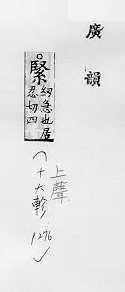 廣韻
緊紉急也居
忍切四
上聲
(十六軫
p276 ✓